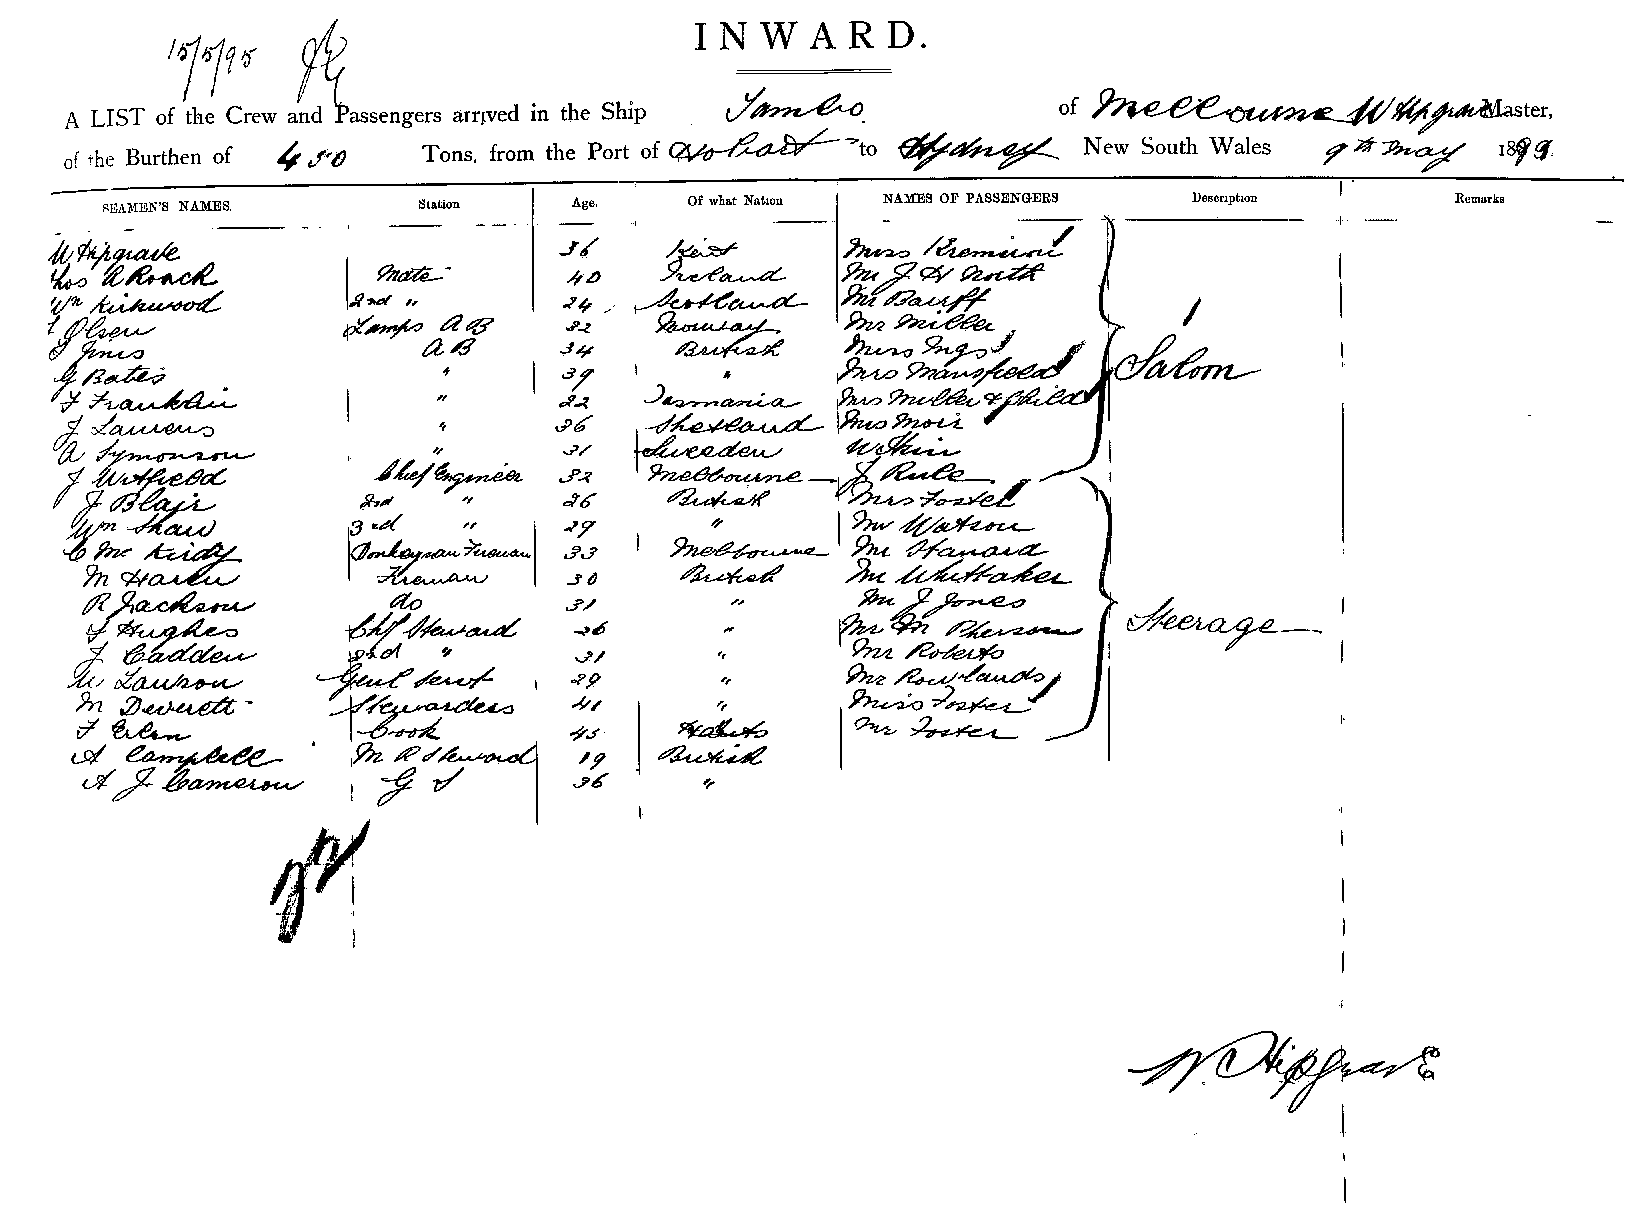 INWARD.
15/5/95
A LIST of the Crew and Passengers arrived in the Ship Tambo of Melbourne W Hipgrave Master,
of the Burthen of 450 Tons, from the Port of Hobart to Sydney New South Wales 9th May 189
SEAMEN'S NAMES. Station Age. Of what Nation NAMES OF PASSENGERS Description Remarks
W Hipgrave 36 Kent Miss
Thos A Roach Mate 40 Ireland Mr J H North
Wm Kirkwood 2nd " 24 Scotland Mr
Olsen Lamps A B 32 Norway Mr Miller
Jones A B 34 British Miss Ings
G Bates " 39 " Mrs Mansfield Saloon
F Franklin " 22 Tasmania Mrs Miller & Child
J Laurens " 36 Shetland Mrs Moir
A Symonson " 31 Sweeden
J Witfield Chief Engineer 32 Melbourne J Rule
J Blair 2nd " 26 British Mrs Foster
Wm Shaw 3rd " 29 " Mr Watson
C Mc Kirdy Donkeyman Fireman 33 Melbourne Mr Stanard
M Haren Fireman 30 British Mr Whittaker
R Jackson do 31 " Mr J Jones
Hughes Chf Steward 26 " Mr Mc Pherson Steerage
J Cadden 2nd " 31 " Mr Roberts
W Lawson Genl Servt 29 " Mr Rowlands
M Deverett Stewardess 41 " Miss Foster
F Cook 45 Mr Foster
A Campbell M R Steward 19 British
A J Cameron G S 36 "
22
W. Hipgrave